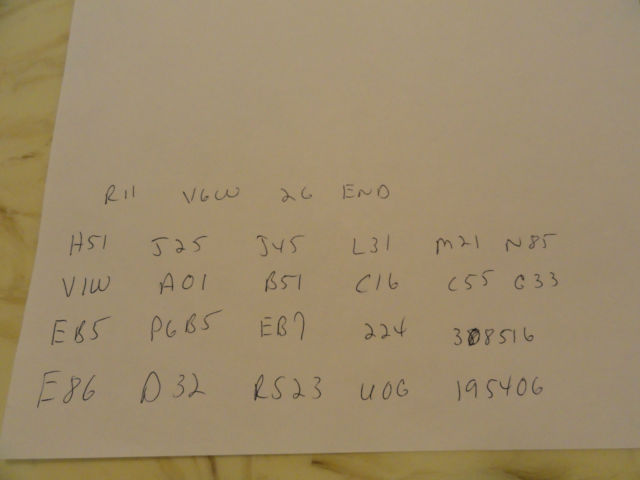 R11 V6W 26 END
H51 J25 J45 L31 M21 N85
V1W A01 B51 C16 C55 G33
EB5 P6B5 EB7 224 308516
E86 D32 R523 U06 195406